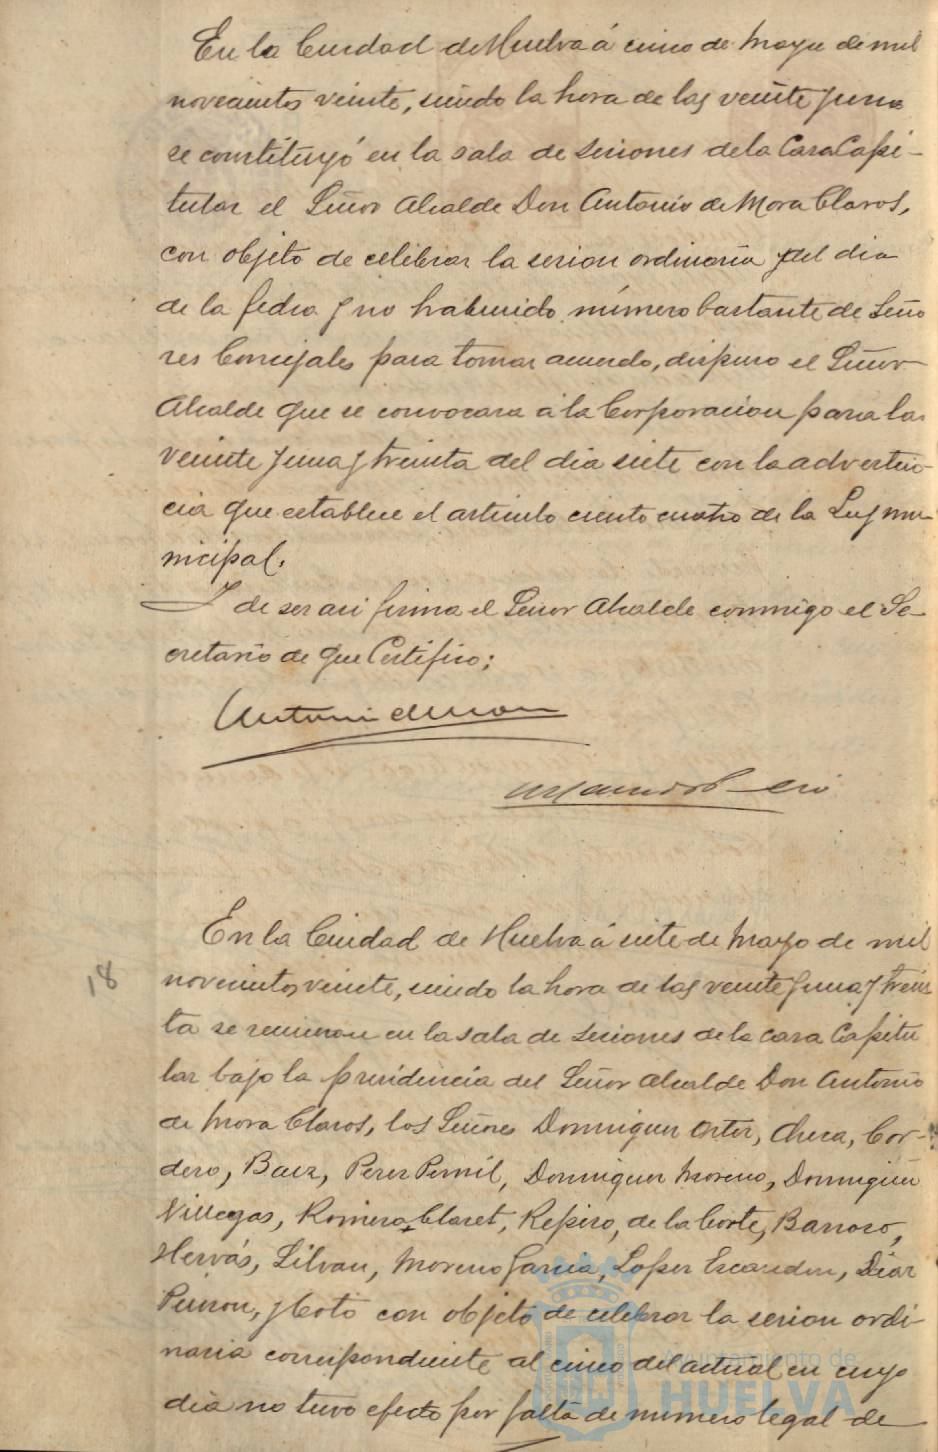 En la Ciudad de Huelva á cinco de Mayo de mil
novecientos veinte, siendo la hora de las veinte y una
se constituyó en la sala de sesiones de la Casa Capi-
tular el Señor Alcalde Don Antonio de Mora Claros,
con objeto de celebrar la sesion ordinaria del dia
de la fecha y no habiendo número bastante de Seño
res Concejales para tomar acuerdo, dispuso el Señor
Alcalde que se convocara á la Corporacion para las
veinte y una y treinta del dia siete con la adverten-
cia que establece el articulo ciento cuatro de la Ley mu-
nicipal.
Y de ser asi firma el Señor Alcalde conmigo el Se-
cretario de que Certifico;
Antonio de Mora
18
En la Ciudad de Huelva á siete de Mayo de mil
novecientos veinte, siendo la hora de las veinte y una y trein
ta se reunieron en la sala de sesiones de la casa Capitu
lar bajo la presidencia del Señor Alcalde Don Antonio
de Mora Claros, los Señores Dominguez Ortiz, Checa, Cor-
dero, Baez, Perez Pernil, Dominguez Moreno, Dominguez
Villegas, Romero Claret, Repiso, de la Corte, Barroso,
Hervás, Silvan, Moreno Garcia, Lopez Escandon, Diaz
Pinzon, y Coto con objeto de celebrar la sesion ordi-
naria correspondiente al cinco del actual en cuyo
dia no tuvo efecto por falta de numero legal de
Ayuntamiento de
HUELVA